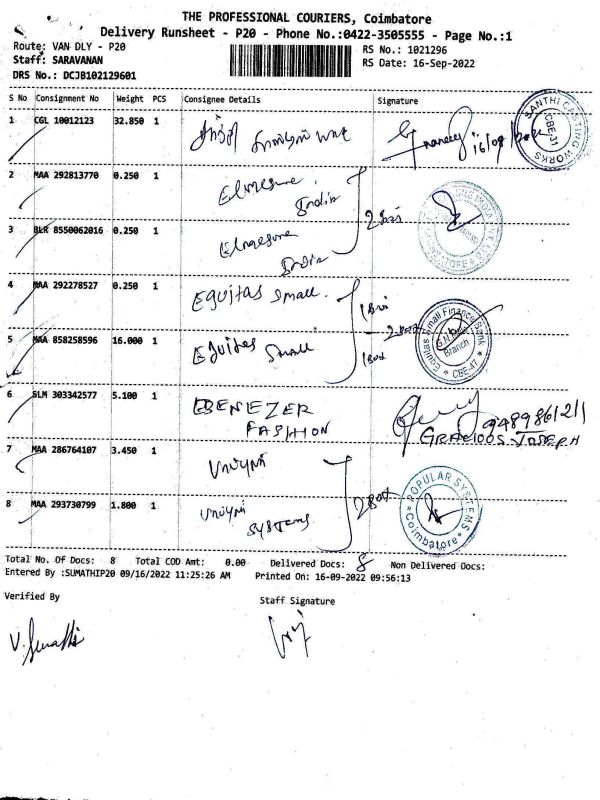 THE PROFESSIONAL COURIERS, Coimbatore
Delivery Runsheet - P20 - Phone No.:0422-3505555 - Page No.:1
Route: VAN DLY - P20
RS No.: 1021296
Staff: SARAVANAN
RS Date: 16-Sep-2022
DRS No.: DCJB102129601
S No Consignment No Weight PCS Consignee Details Signature
1 CGL 10012123 32.850 1
16/09/
SANTHI CASTING WORKS CBE-31
2 MAA 292813770 0.250 1 Elmesure India
3 BLR 8550062016 0.250 1 Elmesure India
4 MAA 292278527 0.250 1 Equitas Small
5 MAA 858258596 16.000 1 Equitas Small
Equitas Small Finance Bank Branch * CBE-47 *
6 SLM 303342577 5.100 1 EBENEZER FASHION
GRACIOUS JOSEPH
7 MAA 286764107 3.450 1
8 MAA 293730799 1.800 1 systems
POPULAR SYSTEMS * Coimbatore *
Total No. Of Docs: 8 Total COD Amt: 0.00 Delivered Docs: 8 Non Delivered Docs:
Entered By :SUMATHIP20 09/16/2022 11:25:26 AM Printed On: 16-09-2022 09:56:13
Verified By
Staff Signature
V. Sumathi